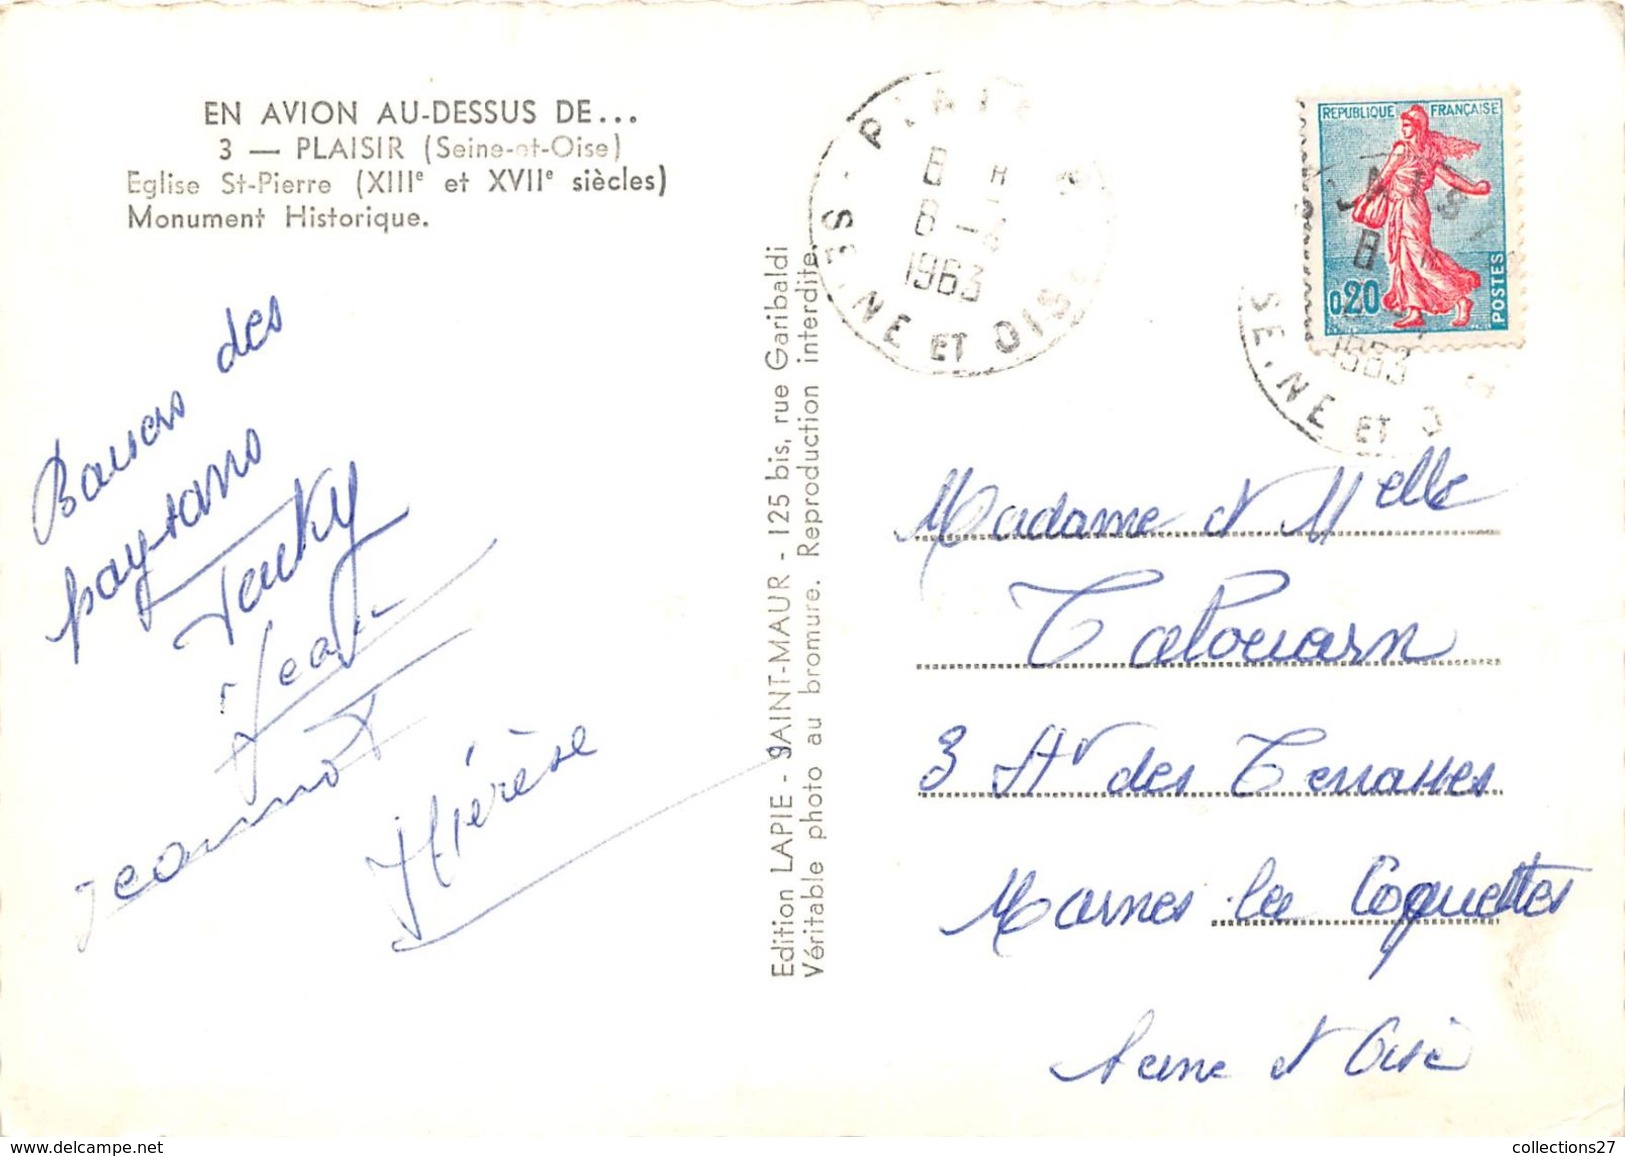 EN AVION AU-DESSUS DE...
3 — PLAISIR (Seine-et-Oise)
Eglise St-Pierre (XIIIᵉ et XVIIᵉ siècles)
Monument Historique.
Baisers des
paysans
Jean
Jeannot
Thérèse
Edition LAPIE - SAINT-MAUR - 125 bis, rue Garibaldi
Véritable photo au bromure. Reproduction interdite.
PLAISIR
8 H
8 - 4
1963
SEINE ET OISE
REPUBLIQUE FRANÇAISE
0,20
POSTES
1963
SEINE ET
Madame et Melle
3 Av des Terrasses
Marnes la Coquettes
Seine et Oise
collections27